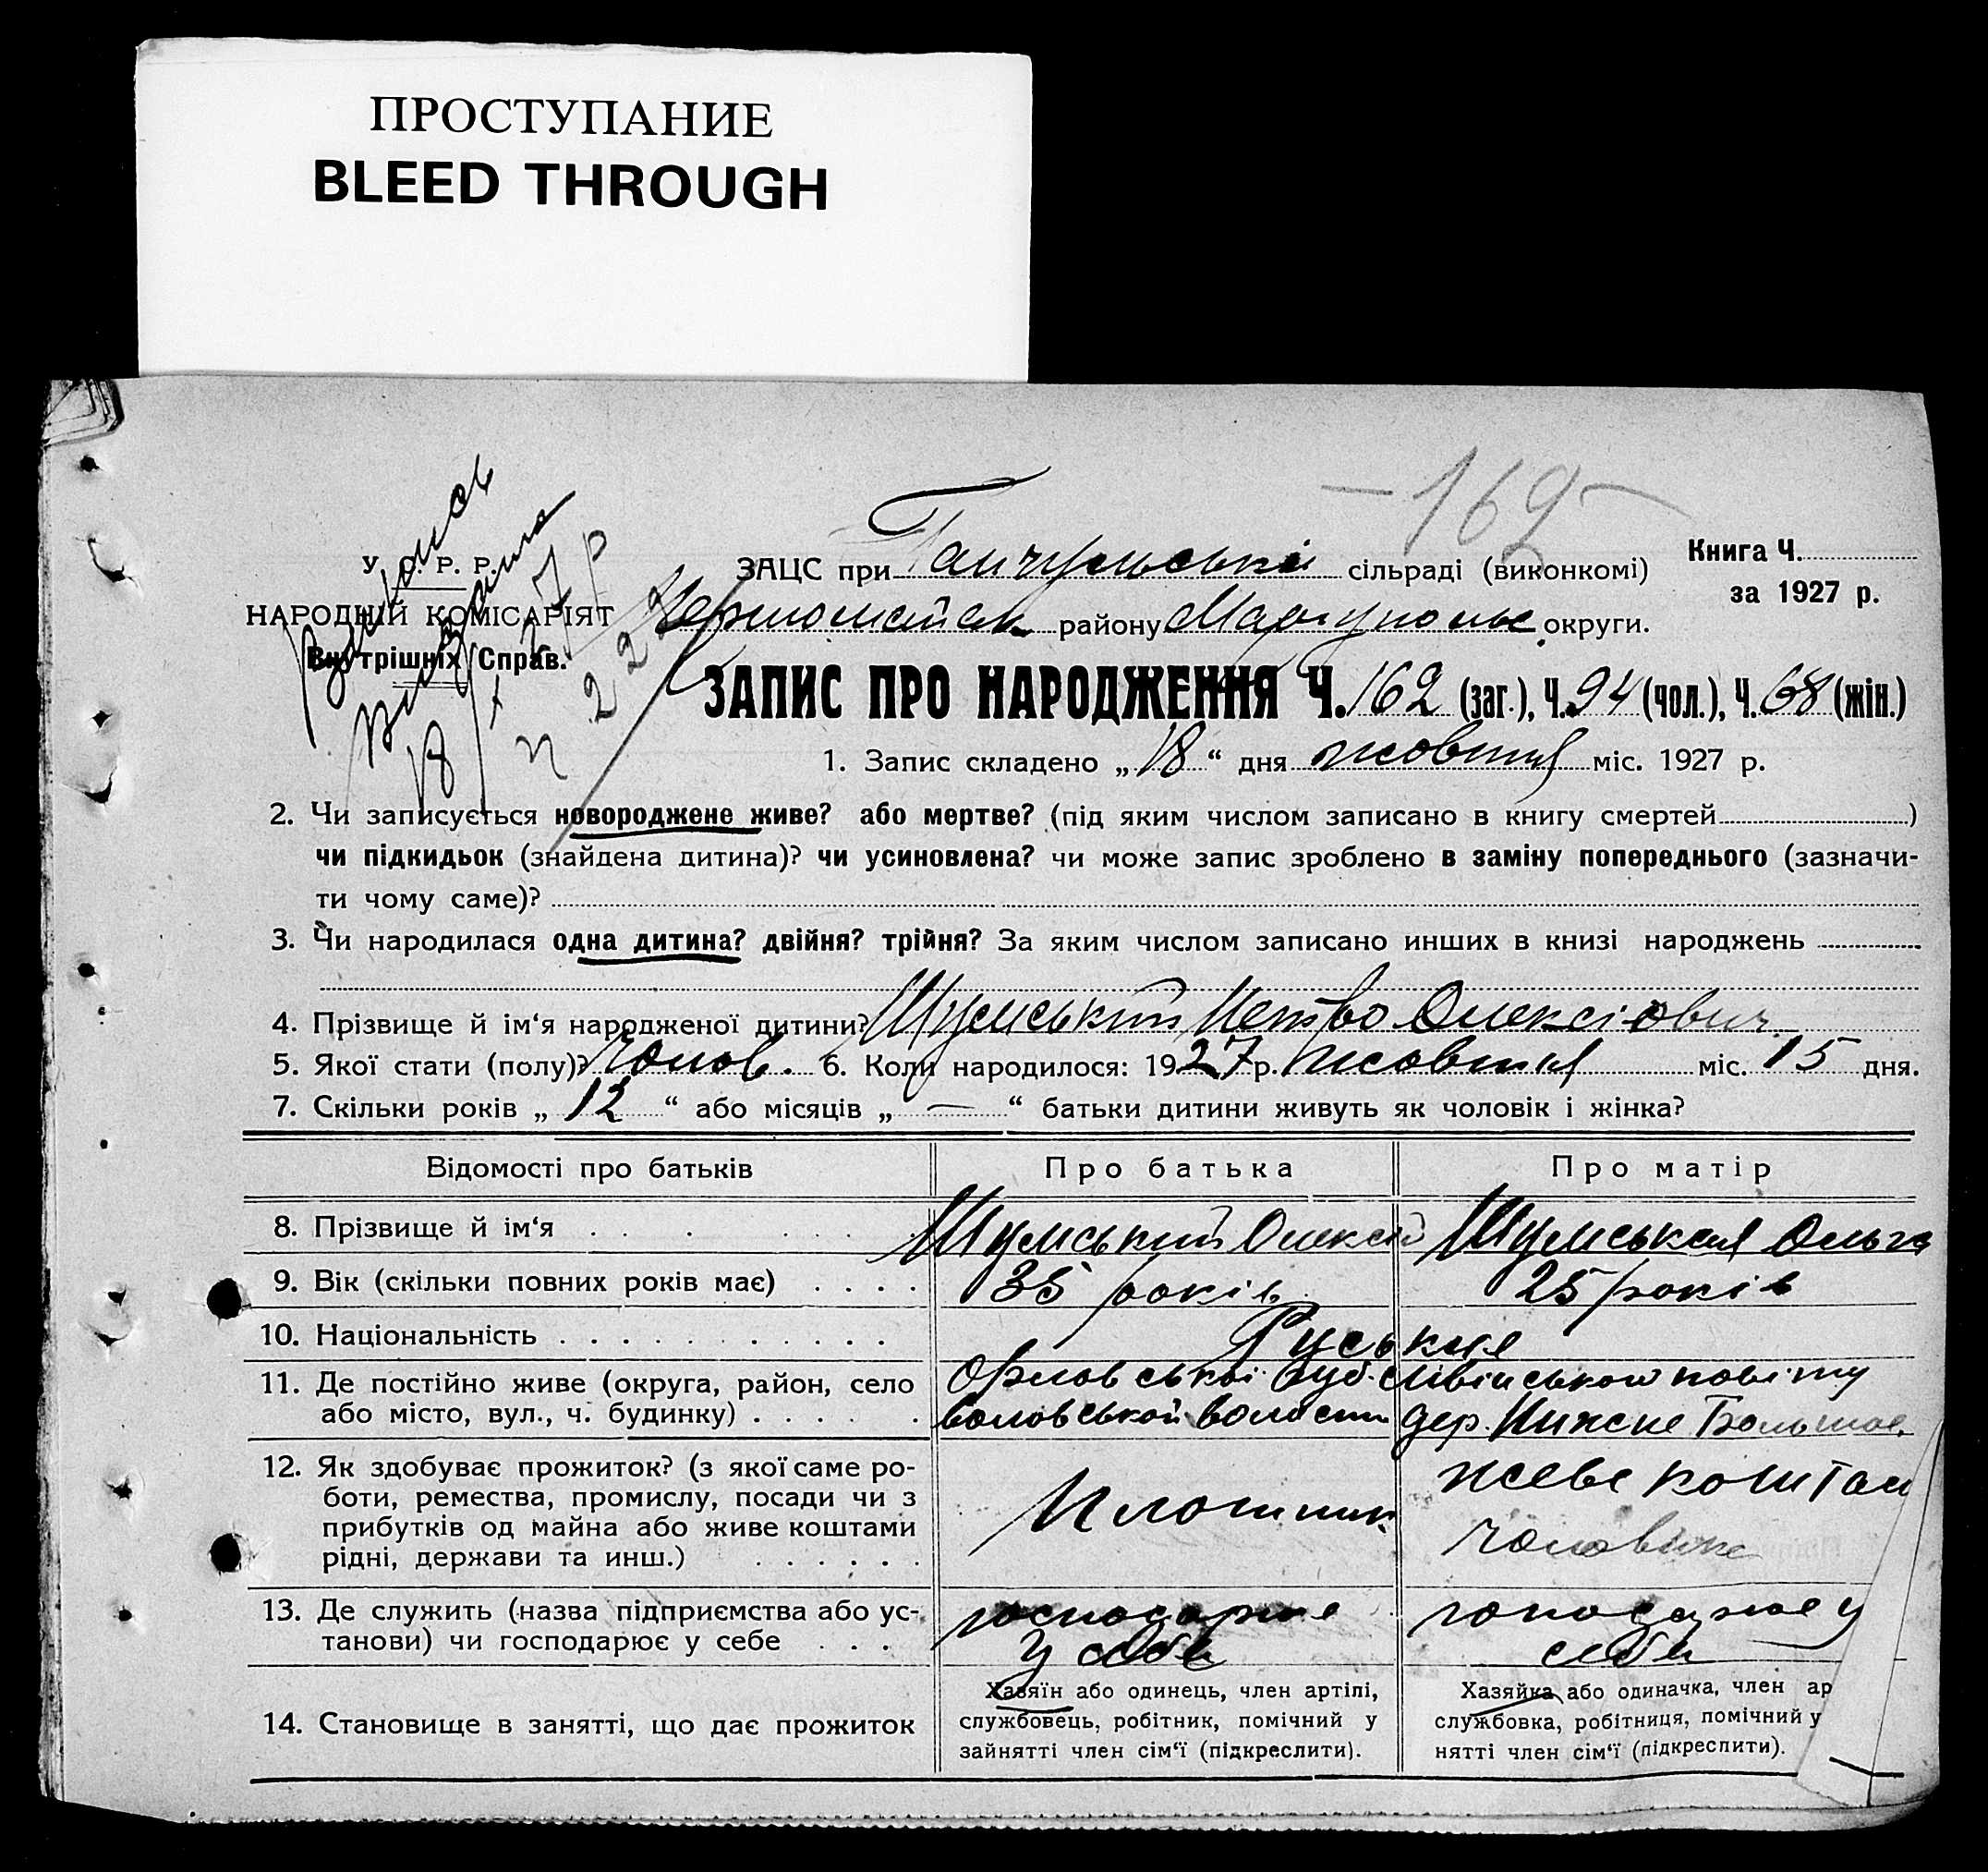 ПРОСТУПАНИЕ
BLEED THROUGH
-162-
У. С. Р. Р.
НАРОДНІЙ КОМІСАРІЯТ
Внутрішніх Справ.
Выпись
выдана
18/X 27 р
n 222
ЗАЦС при сільраді (виконкомі)
Книга Ч.
за 1927 р.
Першомайськ району Маріупольс округи.
ЗАПИС ПРО НАРОДЖЕННЯ Ч. 162 (заг.), Ч. 94 (чол.), Ч. 68 (жін.)
1. Запис складено „ 18 “ дня жовтня міс. 1927 р.
2. Чи записується новороджене живе? або мертве? (під яким числом записано в книгу смертей )
чи підкидьок (знайдена дитина)? чи усиновлена? чи може запис зроблено в заміну попереднього (зазначи-
ти чому саме)?
3. Чи народилася одна дитина? двійня? трійня? За яким числом записано инших в книзі народжень
4. Прізвище й ім‘я народженої дитини? Шумський Петро Олексіович
5. Якої стати (полу)? чолов. 6. Коли народилося: 1927 р. жовтня міс. 15 дня.
7. Скільки років „ 12 “ або місяців „ — “ батьки дитини живуть як чоловік і жінка?
Відомості про батьків Про батька Про матір
8. Прізвище й ім‘я Шумський Олексій Шумськая Ольга
9. Вік (скільки повних років має) 35 років 25 років
10. Національність Руськия
11. Де постійно живе (округа, район, село Орловської губ. повіту
або місто, вул., ч. будинку) волости дер. Нижне Большое
12. Як здобуває прожиток? (з якої саме ро-
боти, ремества, промислу, посади чи з
прибутків од майна або живе коштами
рідні, держави та инш.)
Плотник
живе коштам
чоловіка
13. Де служить (назва підприємства або ус-
танови) чи господарює у себе
господарює
у себе
господарює у
себе
14. Становище в занятті, що дає прожиток
Хазяїн або одинець, член артілі,
службовець, робітник, помічний у
зайнятті член сім‘ї (підкреслити).
Хазяйка або одиначка, член ар
службовка, робітниця, помічний у
нятті член сім‘ї (підкреслити).